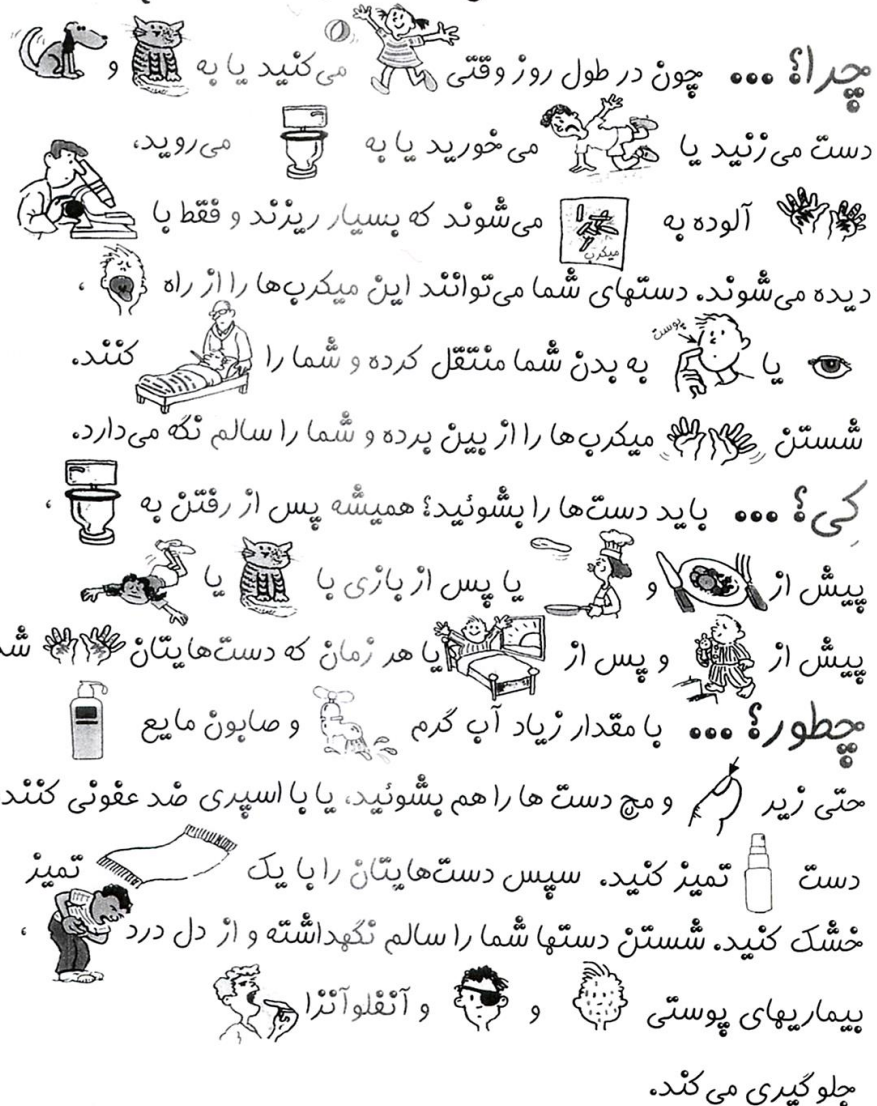 چرا؟ ... چون در طول روز وقتی می‌کنید یا به و
دست می‌زنید یا می‌خورید یا به می‌روید،
آلوده به میکرب می‌شوند که بسیار ریزند و فقط با
دیده می‌شوند. دستهای شما می‌توانند این میکرب‌ها را از راه ،
یا پوست به بدن شما منتقل کرده و شما را کنند.
شستن میکرب‌ها را از بین برده و شما را سالم نگه می‌دارد.
کِی؟ ... باید دست‌ها را بشوئید؟ همیشه پس از رفتن به ،
پیش از و یا پس از بازی با یا
پیش از و پس از یا هر زمان که دست‌هایتان
چطور؟ ... با مقدار زیاد آب گرم و صابون مایع
حتی زیر و مچ دست ها را هم بشوئید، یا با اسپری ضد عفونی کنند
دست تمیز کنید. سپس دست‌هایتان را با یک تمیز
خشک کنید. شستن دستها شما را سالم نگهداشته و از دل درد ،
بیماریهای پوستی و و آنفلوآنزا
جلوگیری می‌کند.